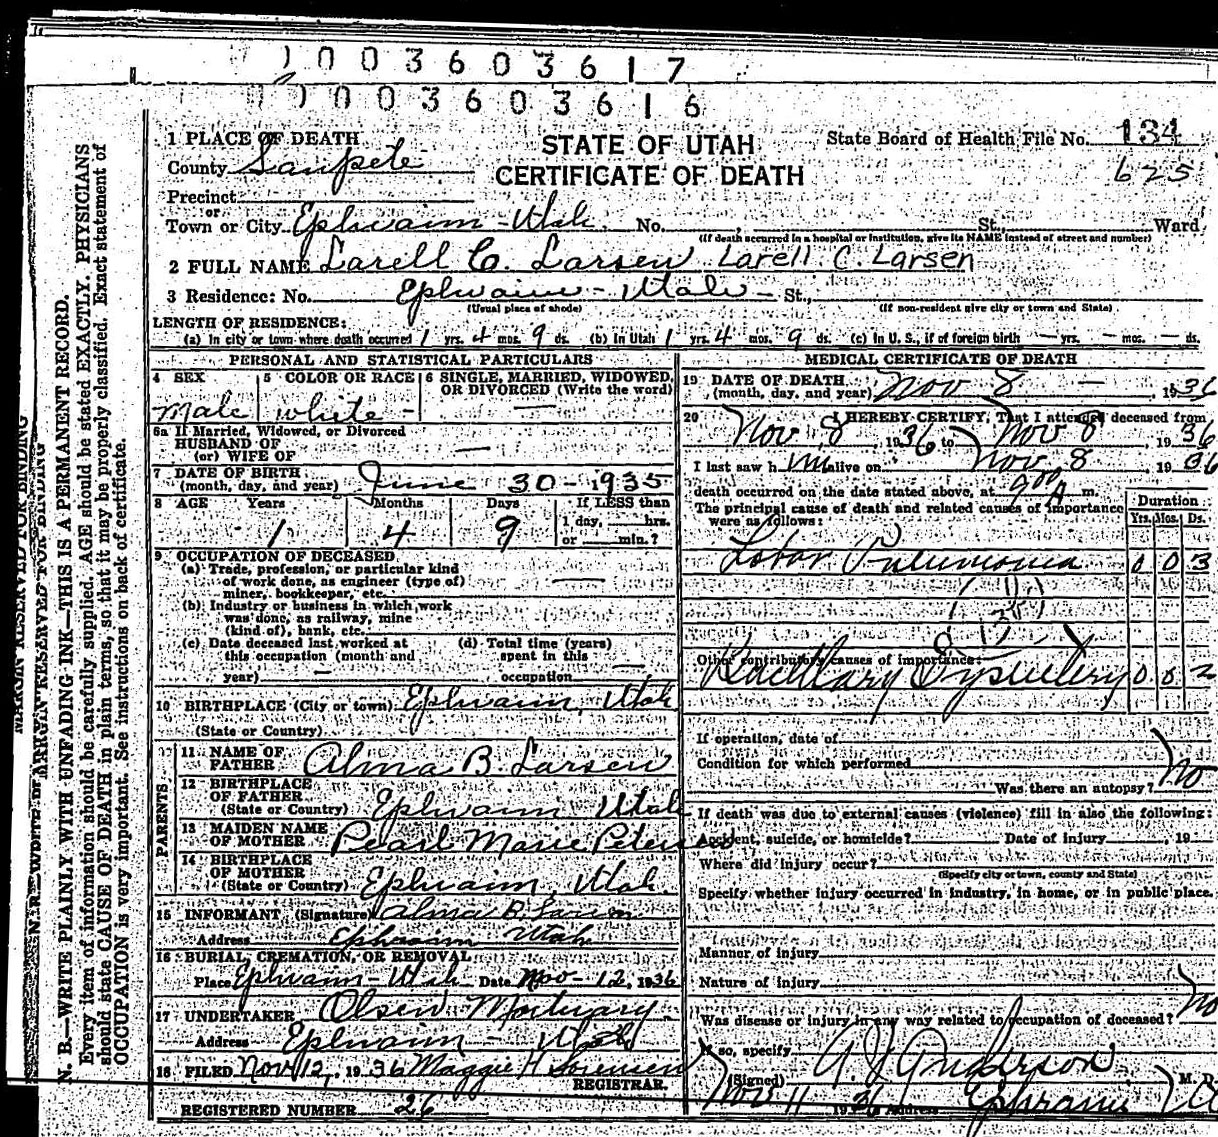 1003603617
1003603616
1 PLACE OF DEATH
County Sanpete
STATE OF UTAH
CERTIFICATE OF DEATH
State Board of Health File No. 134
625
Precinct
or
Town or City Ephraim - Utah. No. St., Ward
(If death occurred in a hospital or institution, give its NAME instead of street and number)
2 FULL NAME Larell C. Larsen Larell C. Larsen
3 Residence: No. Ephraim - Utah - St.,
(Usual place of abode) (If non-resident give city or town and State)
LENGTH OF RESIDENCE:
(a) In city or town where death occurred 1 yrs. 4 mos. 9 ds. (b) in Utah 1 yrs. 4 mos. 9 ds. (c) In U. S., if of foreign birth — yrs. — mos. — ds.
PERSONAL AND STATISTICAL PARTICULARS
4 SEX 5 COLOR OR RACE 6 SINGLE, MARRIED, WIDOWED,
OR DIVORCED (Write the word)
Male white - —
6a If Married, Widowed, or Divorced
HUSBAND OF
(or) WIFE OF —
7 DATE OF BIRTH
(month, day, and year) June 30 - 1935
8 AGE Years Months Days If LESS than
1 4 9 1 day, hrs.
or min.?
9 OCCUPATION OF DECEASED
(a) Trade, profession, or particular kind
of work done, as engineer (type of)
miner, bookkeeper, etc. —
(b) Industry or business in which work
was done, as railway, mine
(kind of), bank, etc.
(c) Date deceased last worked at (d) Total time (years)
this occupation (month and spent in this
year) — occupation —
10 BIRTHPLACE (City or town) Ephraim, Utah
(State or Country)
PARENTS
11 NAME OF
FATHER Alma B. Larsen
12 BIRTHPLACE
OF FATHER
(State or Country) Ephraim Utah
13 MAIDEN NAME
OF MOTHER Pearl Marie Petersen
14 BIRTHPLACE
OF MOTHER
(State or Country) Ephraim, Utah.
15 INFORMANT (Signature) Alma B. Larsen
Address Ephraim Utah
16 BURIAL, CREMATION, OR REMOVAL
Place Ephraim - Utah Date Nov - 12, 1936
17 UNDERTAKER Olsen Mortuary.
Address Ephraim - Utah
18 FILED Nov 12, 1936 Maggie H Sorensen
REGISTRAR.
REGISTERED NUMBER 26
MEDICAL CERTIFICATE OF DEATH
19 DATE OF DEATH
(month, day, and year) Nov 8 — 1936
20 I HEREBY CERTIFY, That I attended deceased from
Nov 8, 1936 to Nov 8 1936
I last saw him alive on Nov 8 1936
death occurred on the date stated above, at 9 00 A m.
The principal cause of death and related causes of importance
were as follows:
Duration
Yrs. Mos. Ds.
Lobar Pneumonia 0 0 3
Other contributory causes of importance:
Bacillary Dysentery 0 0 2
If operation, date of
Condition for which performed
Was there an autopsy? No
If death was due to external causes (violence) fill in also the following:
Accident, suicide, or homicide? Date of injury , 19
Where did injury occur?
(Specify city or town, county and State)
Specify whether injury occurred in industry, in home, or in public place.
Manner of injury
Nature of injury
Was disease or injury in any way related to occupation of deceased? No
If so, specify
(Signed) A J Anderson M. D.
Nov 11 1936 Address Ephraim
MARGIN RESERVED FOR BINDING
N. B.—WRITE PLAINLY WITH UNFADING INK—THIS IS A PERMANENT RECORD.
Every item of information should be carefully supplied. AGE should be stated EXACTLY. PHYSICIANS
should state CAUSE OF DEATH in plain terms, so that it may be properly classified. Exact statement of
OCCUPATION is very important. See instructions on back of certificate.